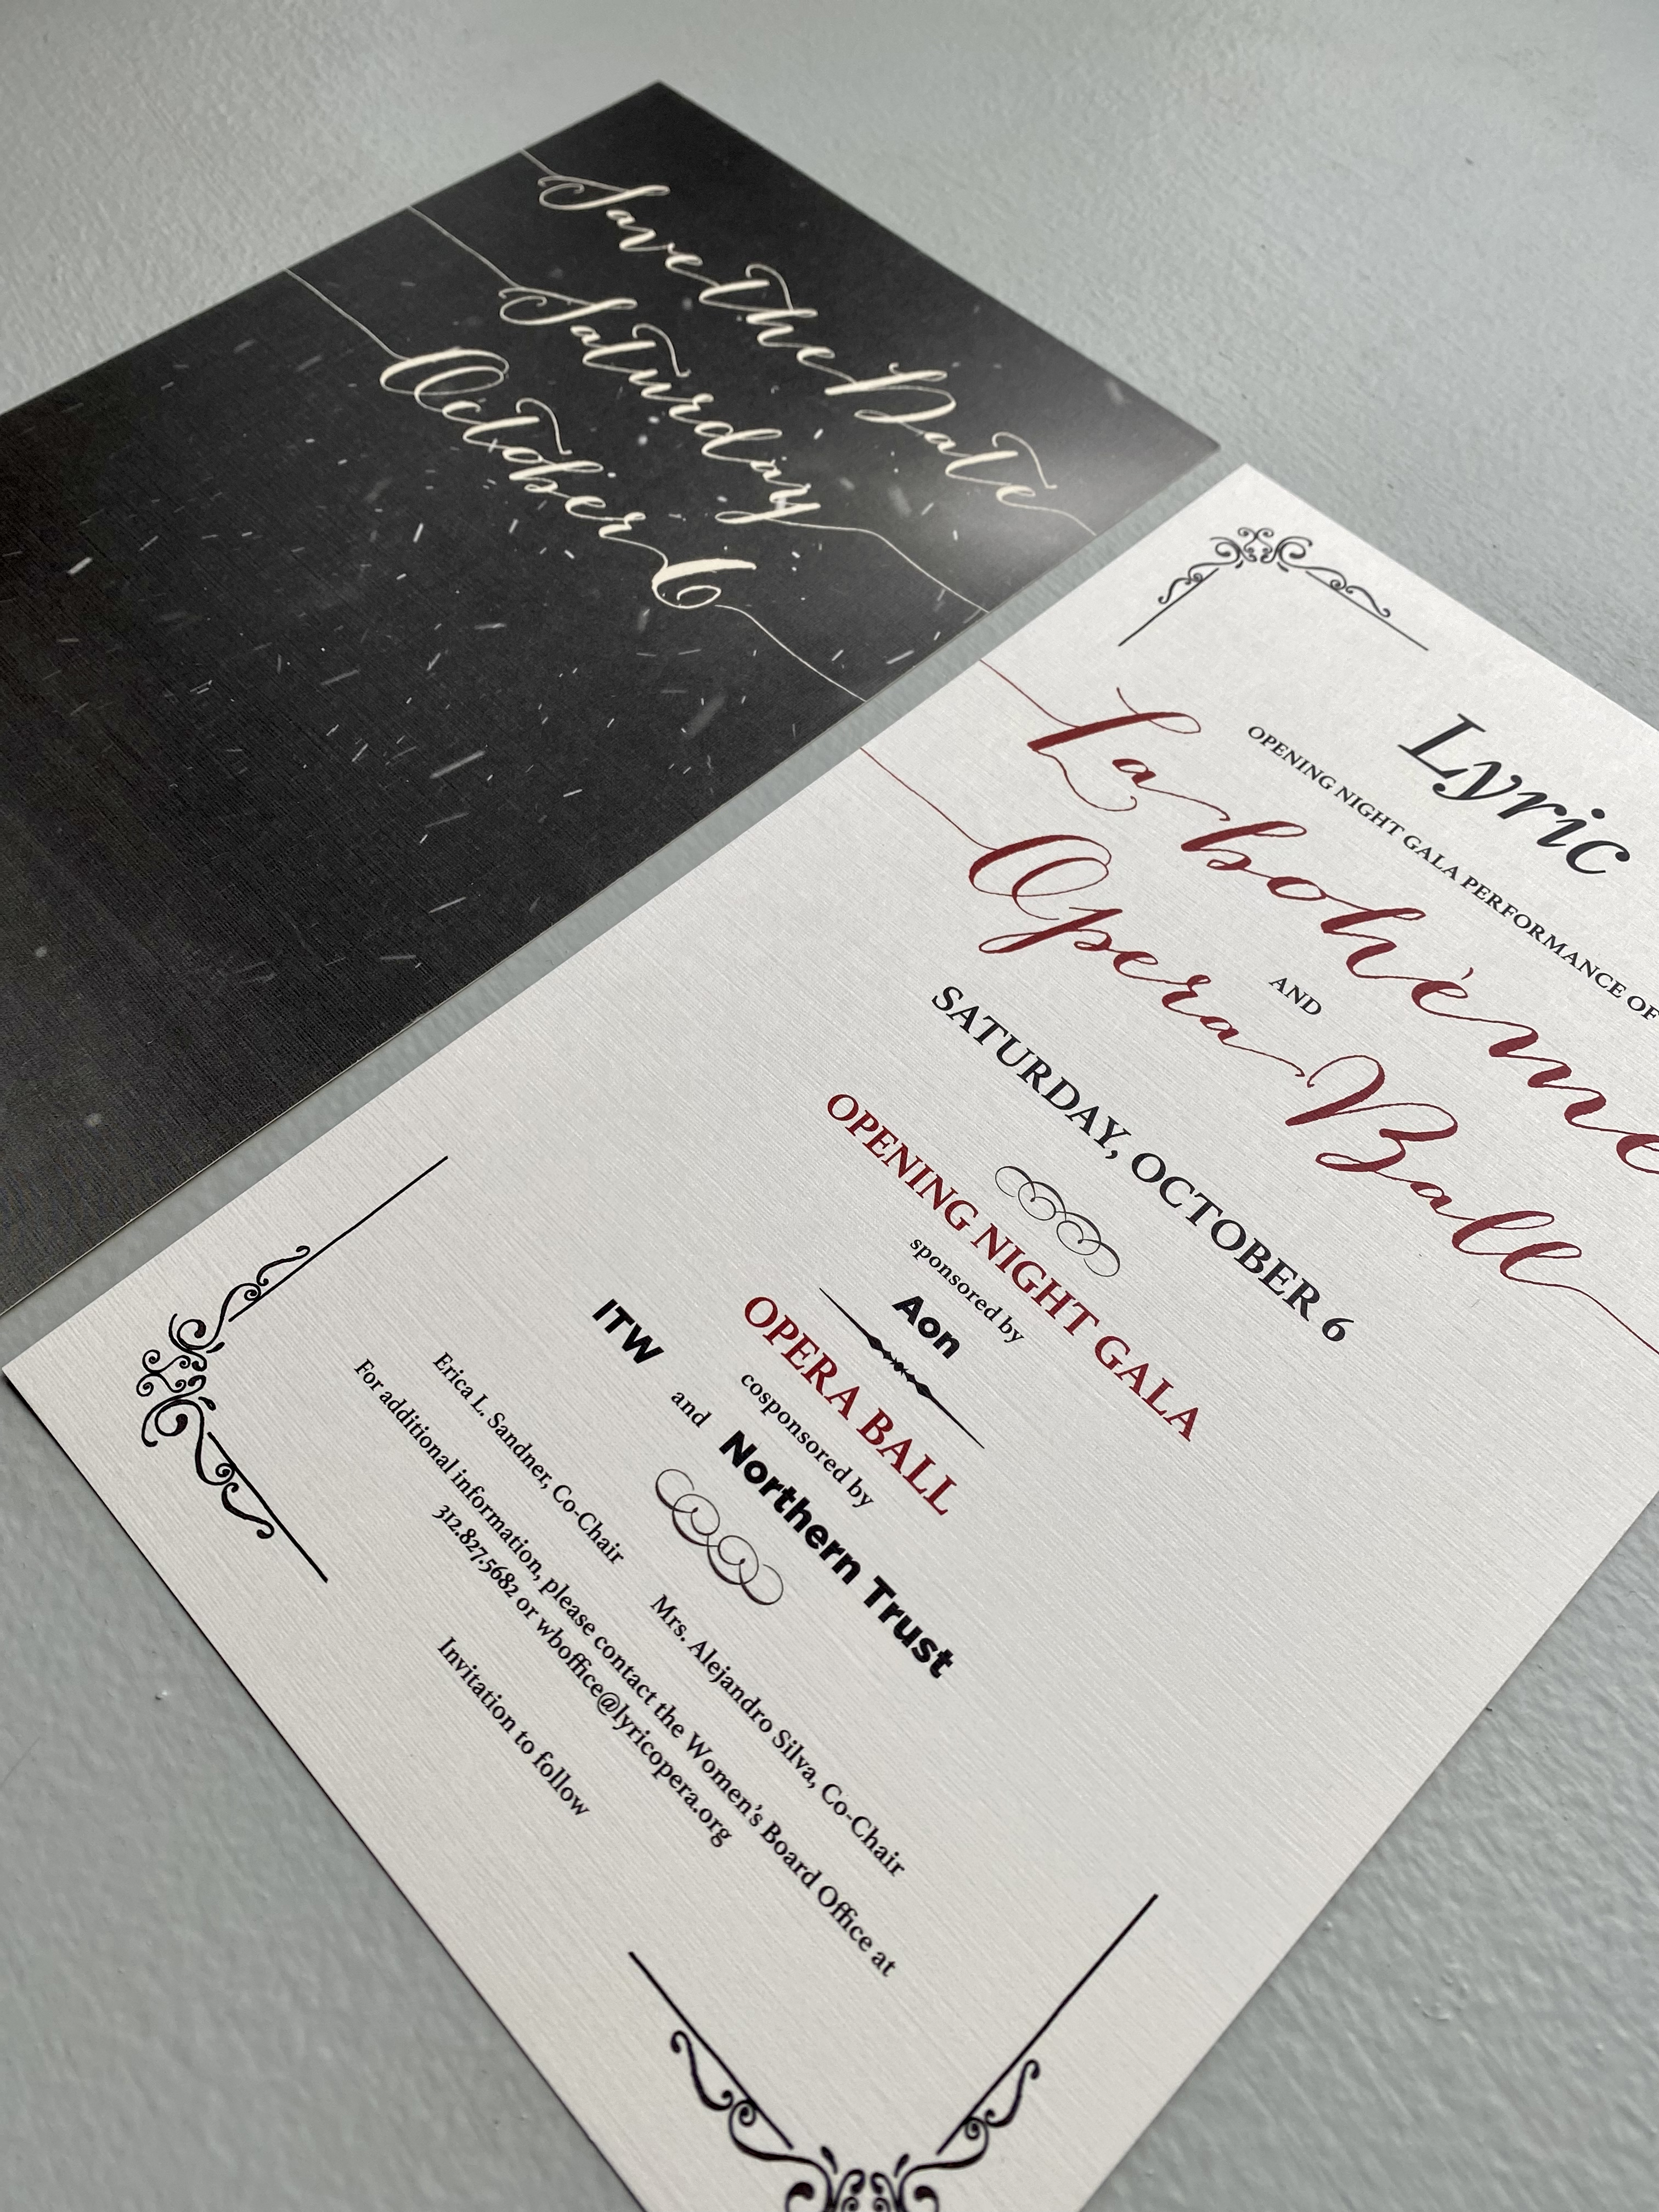 Save the Date
Saturday
October 6
Lyric
OPENING NIGHT GALA PERFORMANCE OF
La bohème
AND
Opera Ball
SATURDAY, OCTOBER 6
OPENING NIGHT GALA
sponsored by
Aon
OPERA BALL
cosponsored by
ITW and Northern Trust
Erica L. Sandner, Co-Chair Mrs. Alejandro Silva, Co-Chair
For additional information, please contact the Women's Board Office at
312.827.5682 or wboffice@lyricopera.org
Invitation to follow